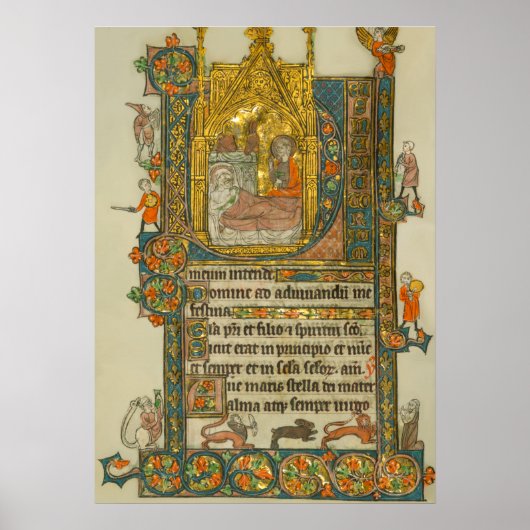 D
eus in adiutorium
meum intende
Domine ad adiuvandum me
festina
Gla pri et filio & spiritui sco
Sicut erat in principio et nunc
et semper et in scla sclor. am.
Ave maris stella dei mater
alma atq semper virgo